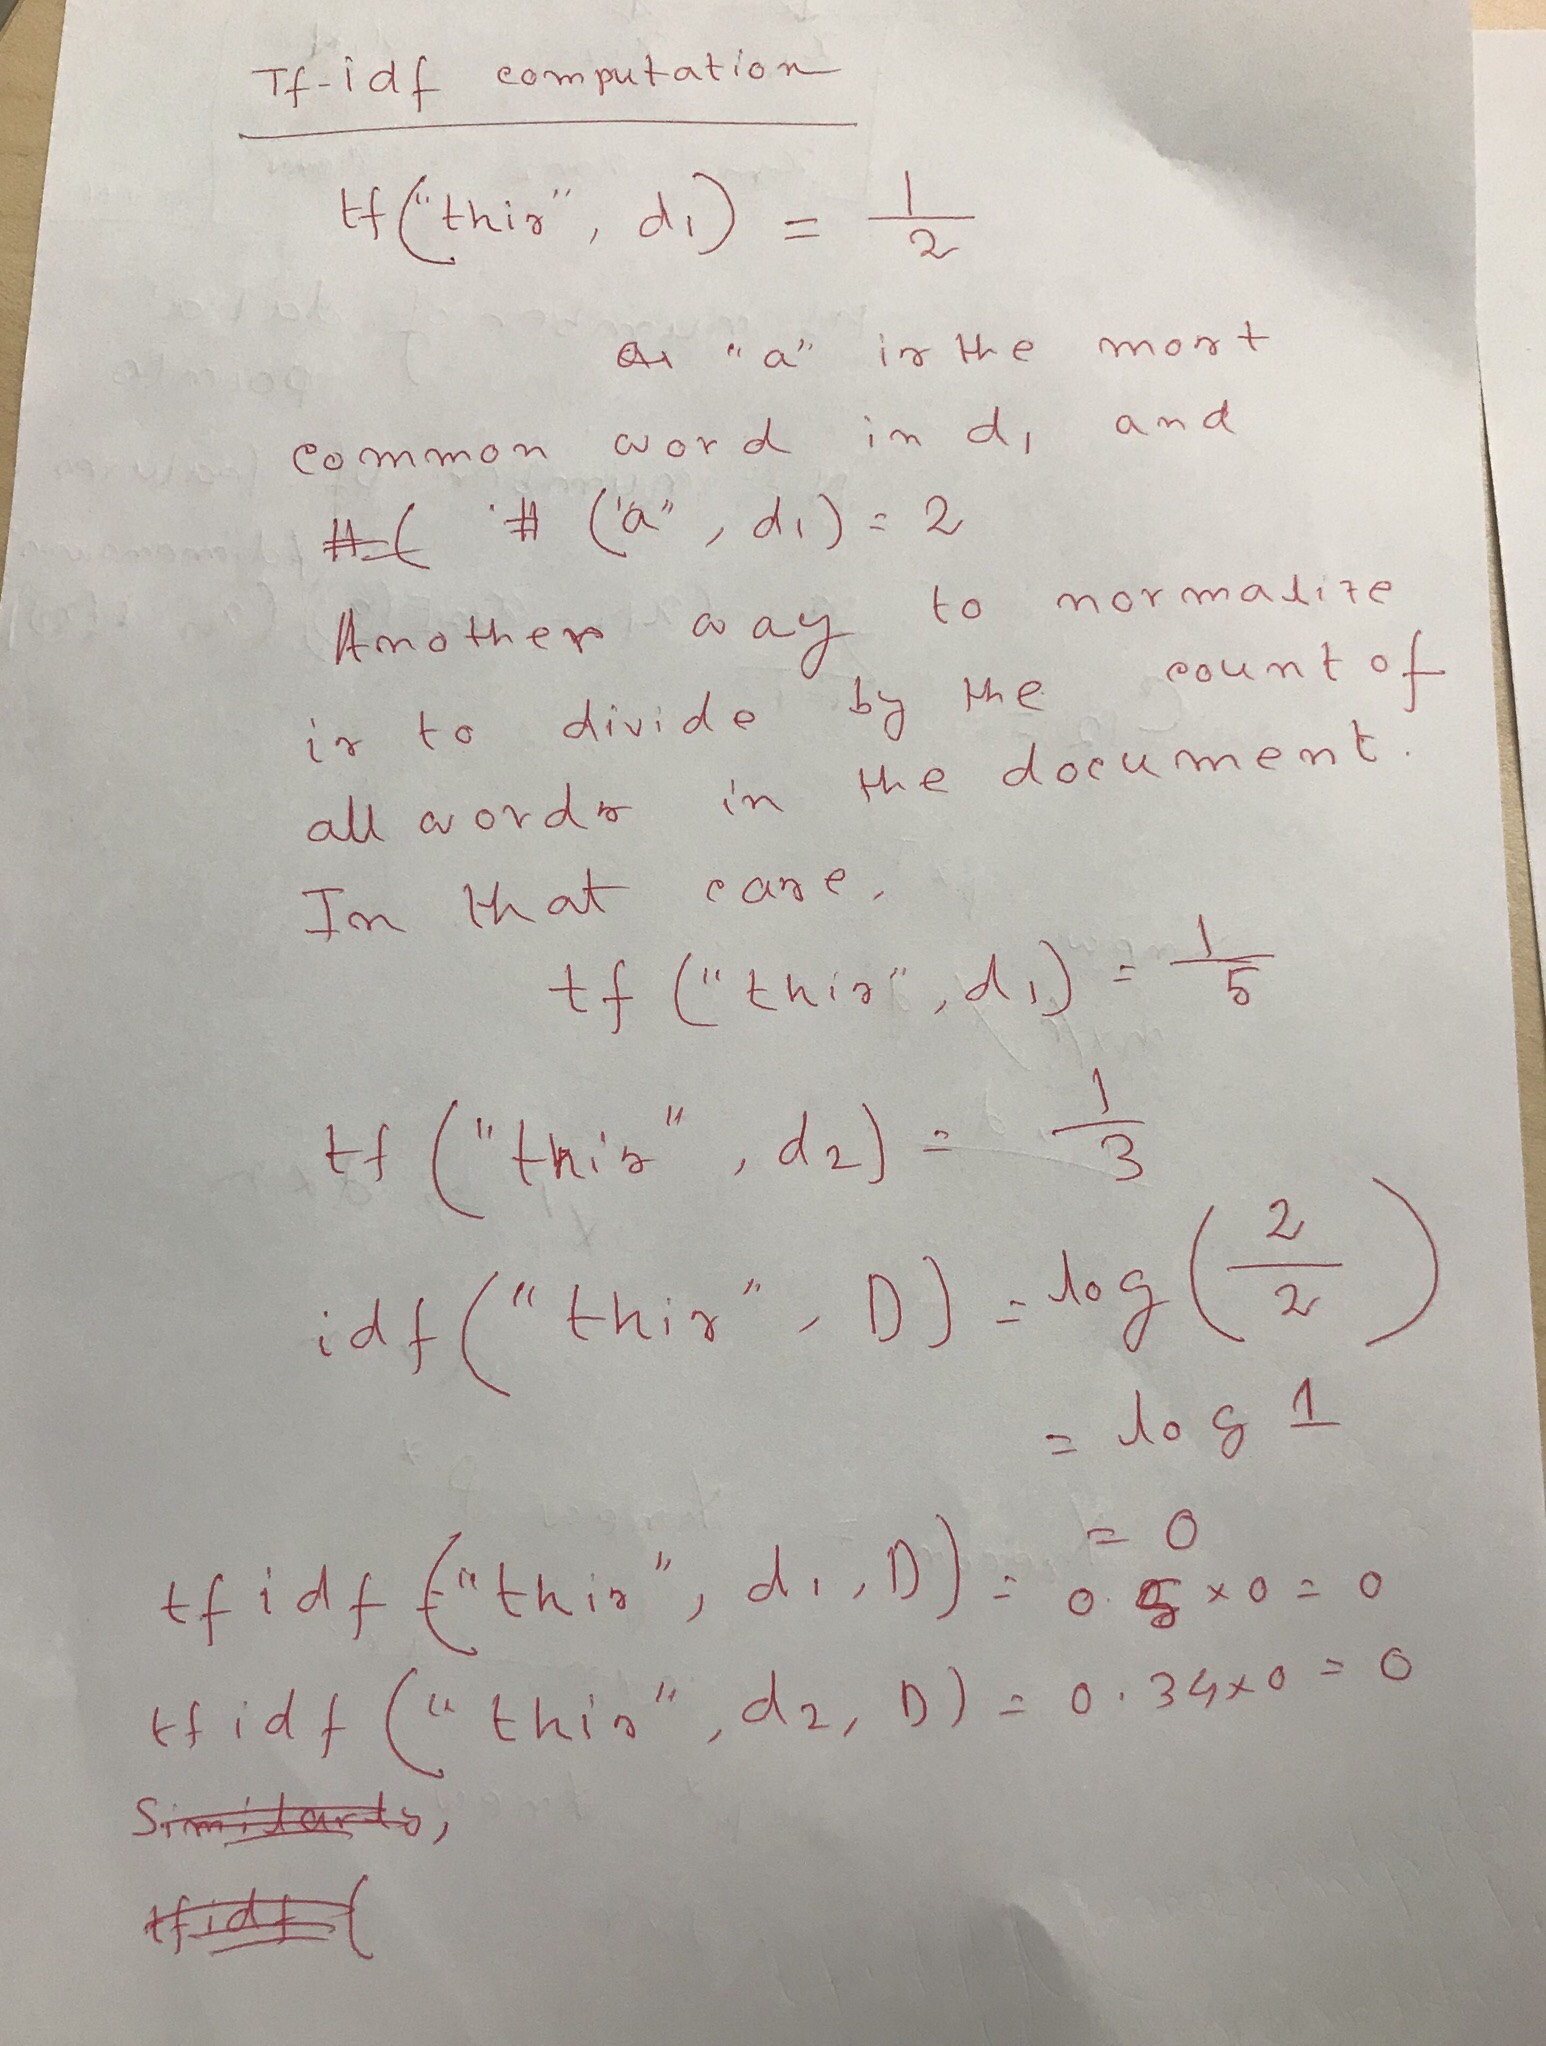 Tf-idf computation
tf("this", d1) = 1/2
As "a" is the most
common word in d1 and
#( # ("a", d1) = 2
Another way to normalize
is to divide by the count of
all words in the document.
In that case,
tf ("this", d1) = 1/5
tf ("this", d2) = 1/3
idf("this", D) = log(2/2)
= log 1
= 0
tf idf ("this", d1, D) = 0.5 x 0 = 0
tf idf ("this", d2, D) = 0.34 x 0 = 0
Similarly,
tf idf (